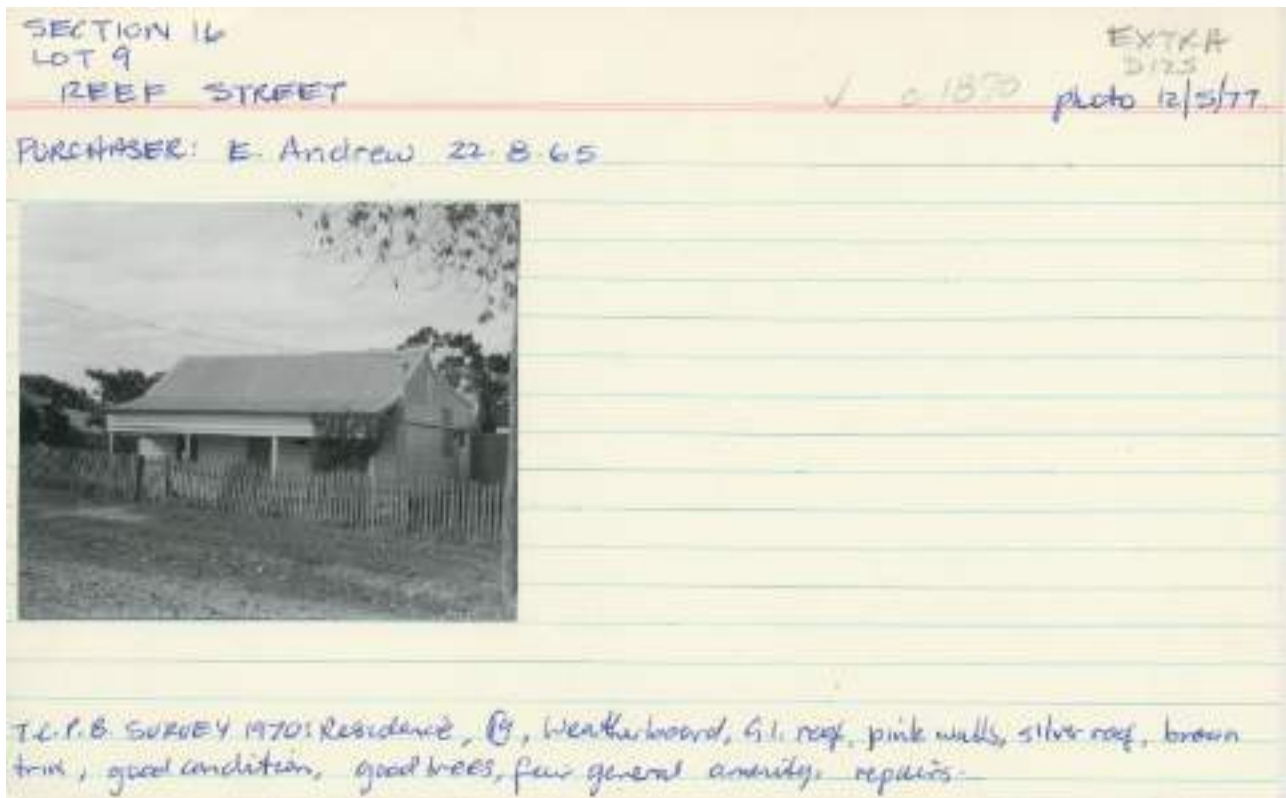 SECTION 16
LOT 9
REEF STREET
EXTRA
✓ c 1870 photo 12/5/77.
PURCHASER: E. Andrew 22.8.65
T.C.P.B. SURVEY 1970: Residence, , Weatherboard, G.I. roof, pink walls, silver roof, brown
trim, good condition, good trees, general amenity, repairs.